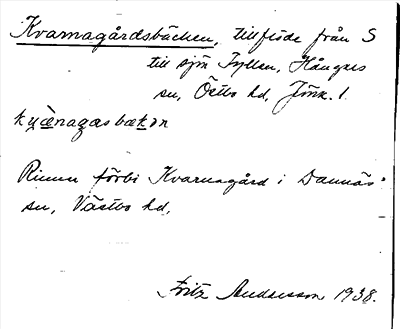 Kvarnagårdsbäcken, tillflöde från S
till sjön Fyllen, Hångers
sn, Östbo hd, Jönk. l.
kvænagasbækən
Rinner förbi Kvarnagård i Dannäs
sn, Västbo hd,
Fritz Andersson 1938.